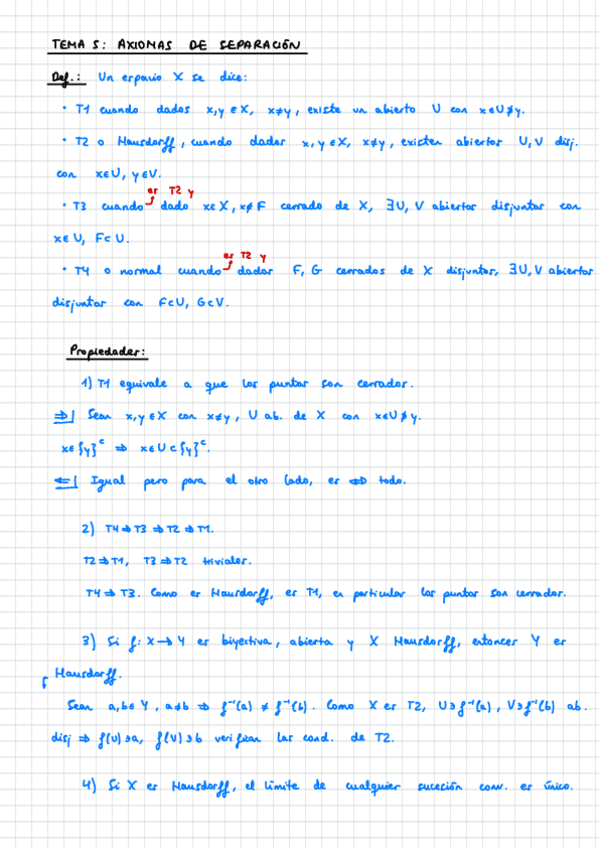 TEMA 5: AXIOMAS DE SEPARACIÓN
Def.: Un espacio X se dice:
· T1 cuando dados x,y ∈ X, x≠y, existe un abierto U con x∈U∌y.
· T2 o Hausdorff, cuando dados x, y ∈ X, x≠y, existen abiertos U, V disj.
con x∈U, y∈V.
es T2 y
· T3 cuando dado x∈X, x∉F cerrado de X, ∃U, V abiertos disjuntos con
x∈U, F⊂U.
es T2 y
· T4 o normal cuando dados F, G cerrados de X disjuntos, ∃U, V abiertos
disjuntos con F⊂U, G⊂V.
Propiedades:
1) T1 equivale a que los puntos son cerrados.
⇒| Sean x,y ∈ X con x≠y, U ab. de X con x∈U∌y.
x∈{y}ᶜ ⇒ x∈U⊂{y}ᶜ.
⇐| Igual pero para el otro lado, es ⇔ todo.
2) T4⇒T3⇒T2⇒T1.
T2⇒T1, T3⇒T2 triviales.
T4⇒T3. Como es Hausdorff, es T1, en particular los puntos son cerrados.
3) Si f: X→Y es biyectiva, abierta y X Hausdorff, entonces Y es
Hausdorff.
Sean a,b∈Y, a≠b ⇒ f⁻¹(a) ≠ f⁻¹(b). Como X es T2, U∋f⁻¹(a), V∋f⁻¹(b) ab.
disj ⇒ f(U)∋a, f(V)∋b verifican las cond. de T2.
4) Si X es Hausdorff, el límite de cualquier sucesión conv. es único.